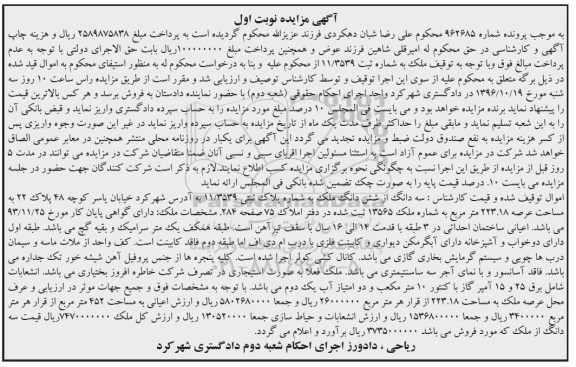 آگهی مزایده نوبت اول
به موجب پرونده شماره ۹۶۲۶۸۵ محکوم علی رضا شبان دهکردی فرزند عزیزالله محکوم گردیده است به پرداخت مبلغ ۲۵۸۹۸۷۵۸۳۸ ریال و هزینه چاپ
آگهی و کارشناسی در حق محکوم له امیرقلی شاهین فرزند عوض و همچنین پرداخت مبلغ ۱۰۰۰۰۰۰۰۰ریال بابت حق الاجرای دولتی با توجه به عدم
پرداخت مبالغ فوق وبا توجه به توقیف ملک به شماره ثبت ۱۱/۳۵۳۹ از محکوم علیه و بنا به درخواست محکوم له به منظور استیفای محکوم به اموال قید شده
در ذیل برگه متعلق به محکوم علیه از سوی این اجرا توقیف و توسط کارشناس توصیف و ارزیابی شد و مقرر است از طریق مزایده راس ساعت ۱۰ روز سه
شنبه مورخ ۱۳۹۶/۱۰/۱۹ در دادگستری شهرکرد واحد اجرای احکام حقوقی (شعبه دوم) با حضور نماینده دادستان به فروش برسد و هر کس بالاترین قیمت
را پیشنهاد نماید برنده مزایده خواهد بود و می بایست فی المجلس ۱۰ درصد مبلغ مورد مزایده را به حساب سپرده دادگستری واریز نماید و قبض بانکی آن
را به این شعبه تسلیم نماید و مابقی مبلغ را حداکثر ظرف مدت یک ماه از تاریخ مزایده به حساب سپرده واریز نماید در غیر این صورت وجوه واریزی پس
از کسر هزینه مزایده به نفع صندوق دولت ضبط و مزایده تجدید می گردد این آگهی برای یکبار در روزنامه محلی منتشر همچنین در معابر عمومی الصاق
خواهد شد شرکت در مزایده برای عموم آزاد است به استثنا مسئولین اجرا اقربای سببی و نسبی آنان ضمنا متقاضیان شرکت در مزایده می توانند در مدت ۵
روز قبل از مزایده از طریق این اجرا نسبت به چگونگی نحوه برگزاری مزایده کسب اطلاع نمایند.لازم به ذکر است شرکت کنندگان جهت حضور در جلسه
مزایده می بایست ۱۰ درصد قیمت پایه را به صورت چک تضمین شده بانکی فی المجلس ارائه نماید
اموال توقیف شده و قیمت کارشناس : سه دانگ از شش دانگ ملک به شماره پلاک ثبتی ۱۱/۳۵۳۹ به آدرس شهرکرد خیابان یاسر کوچه ۴۸ پلاک ۲۲ به
مساحت عرصه ۲۲۳.۱۸ متر مربع به شماره ملک ۱۳۵۶۵ ثبت شده در دفتر املاک ۷۵ صفحه ۲۸۴ مشخصات ملک: دارای گواهی پایان کار مورخ ۹۳/۱۱/۲۵
می باشد. اعیانی ساختمان احداثی در ۳ طبقه با قدمت ۱۴ الی ۱۶ سال با سقف تیر آهن است طبقه همکف یک متر سرامیک و بقیه گچ می باشد. طبقه اول
دارای دوخواب و آشپزخانه دارای آبگرمکن دیواری و کابینت فلزی با درب ام دی اف اما طبقه دوم فاقد کابینت است. کف واحد از ملات ماسه و سیمان
درب ها چوبی و سیستم گرمایش بخاری گازی می باشد. کانال کشی کولر اجرا شده است. کلیه پنجره ها از جنس پروفیل آهن شیشه خور تک جداره می
باشد. فاقد آسانسور و با نمای آجر سه سانتیمتری می باشد. ملک فعلا به صورت استیجاری در تصرف شرکت خاطره افروز بختیاری می باشد. انشعابات
شامل برق ۲۵ و ۱۵ آمپر گاز با کنتور ۱۰ متر مکعب و دو امتیاز آب یک دوم می باشد. با توجه به مشخصات فوق و جمیع جهات موثر در ارزیابی و عرف
محل عرصه ملک به مساحت ۲۲۳.۱۸ از قرار هر متر مربع ۲۶۰۰۰۰۰۰ ریال و جمعا ۵۸۰۲۶۸۰۰۰۰ ریال و ارزش اعیانی به مساحت ۴۵۲ متر مربع از قرار هر متر
مربع ۳۴۰۰۰۰۰ ریال و جمعا ۱۵۳۶۸۰۰۰۰۰ ریال و ارزش انشعابات و حیاط سازی جمعا ۱۳۰۵۲۰۰۰۰ ریال و ارزش کل ملک ۷۴۷۰۰۰۰۰۰۰ریال قیمت سه
دانگ از ملک که مورد فروش می باشد ۳۷۳۵۰۰۰۰۰۰ ریال برآورد و اعلام می گردد.
ریاحی ، دادورز اجرای احکام شعبه دوم دادگستری شهرکرد